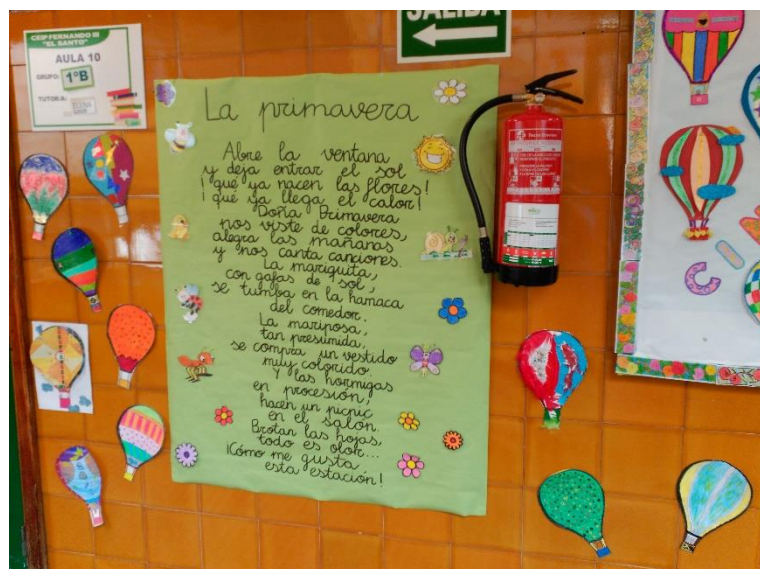 SALIDA
CEIP FERNANDO III
"EL SANTO"
AULA 10
GRUPO: 1ºB
TUTORA:
La primavera
Abre la ventana
y deja entrar el sol
¡que ya nacen las flores!
¡que ya llega el calor!
Doña Primavera
nos viste de colores,
alegra las mañanas
y nos canta canciones.
La mariquita,
con gafas de sol,
se tumba en la hamaca
del comedor.
La mariposa,
tan presumida,
se compra un vestido
muy colorido.
Y las hormigas
en procesión,
hacen un picnic
en el salón.
Brotan las hojas,
todo es olor...
¡Cómo me gusta
esta estación!